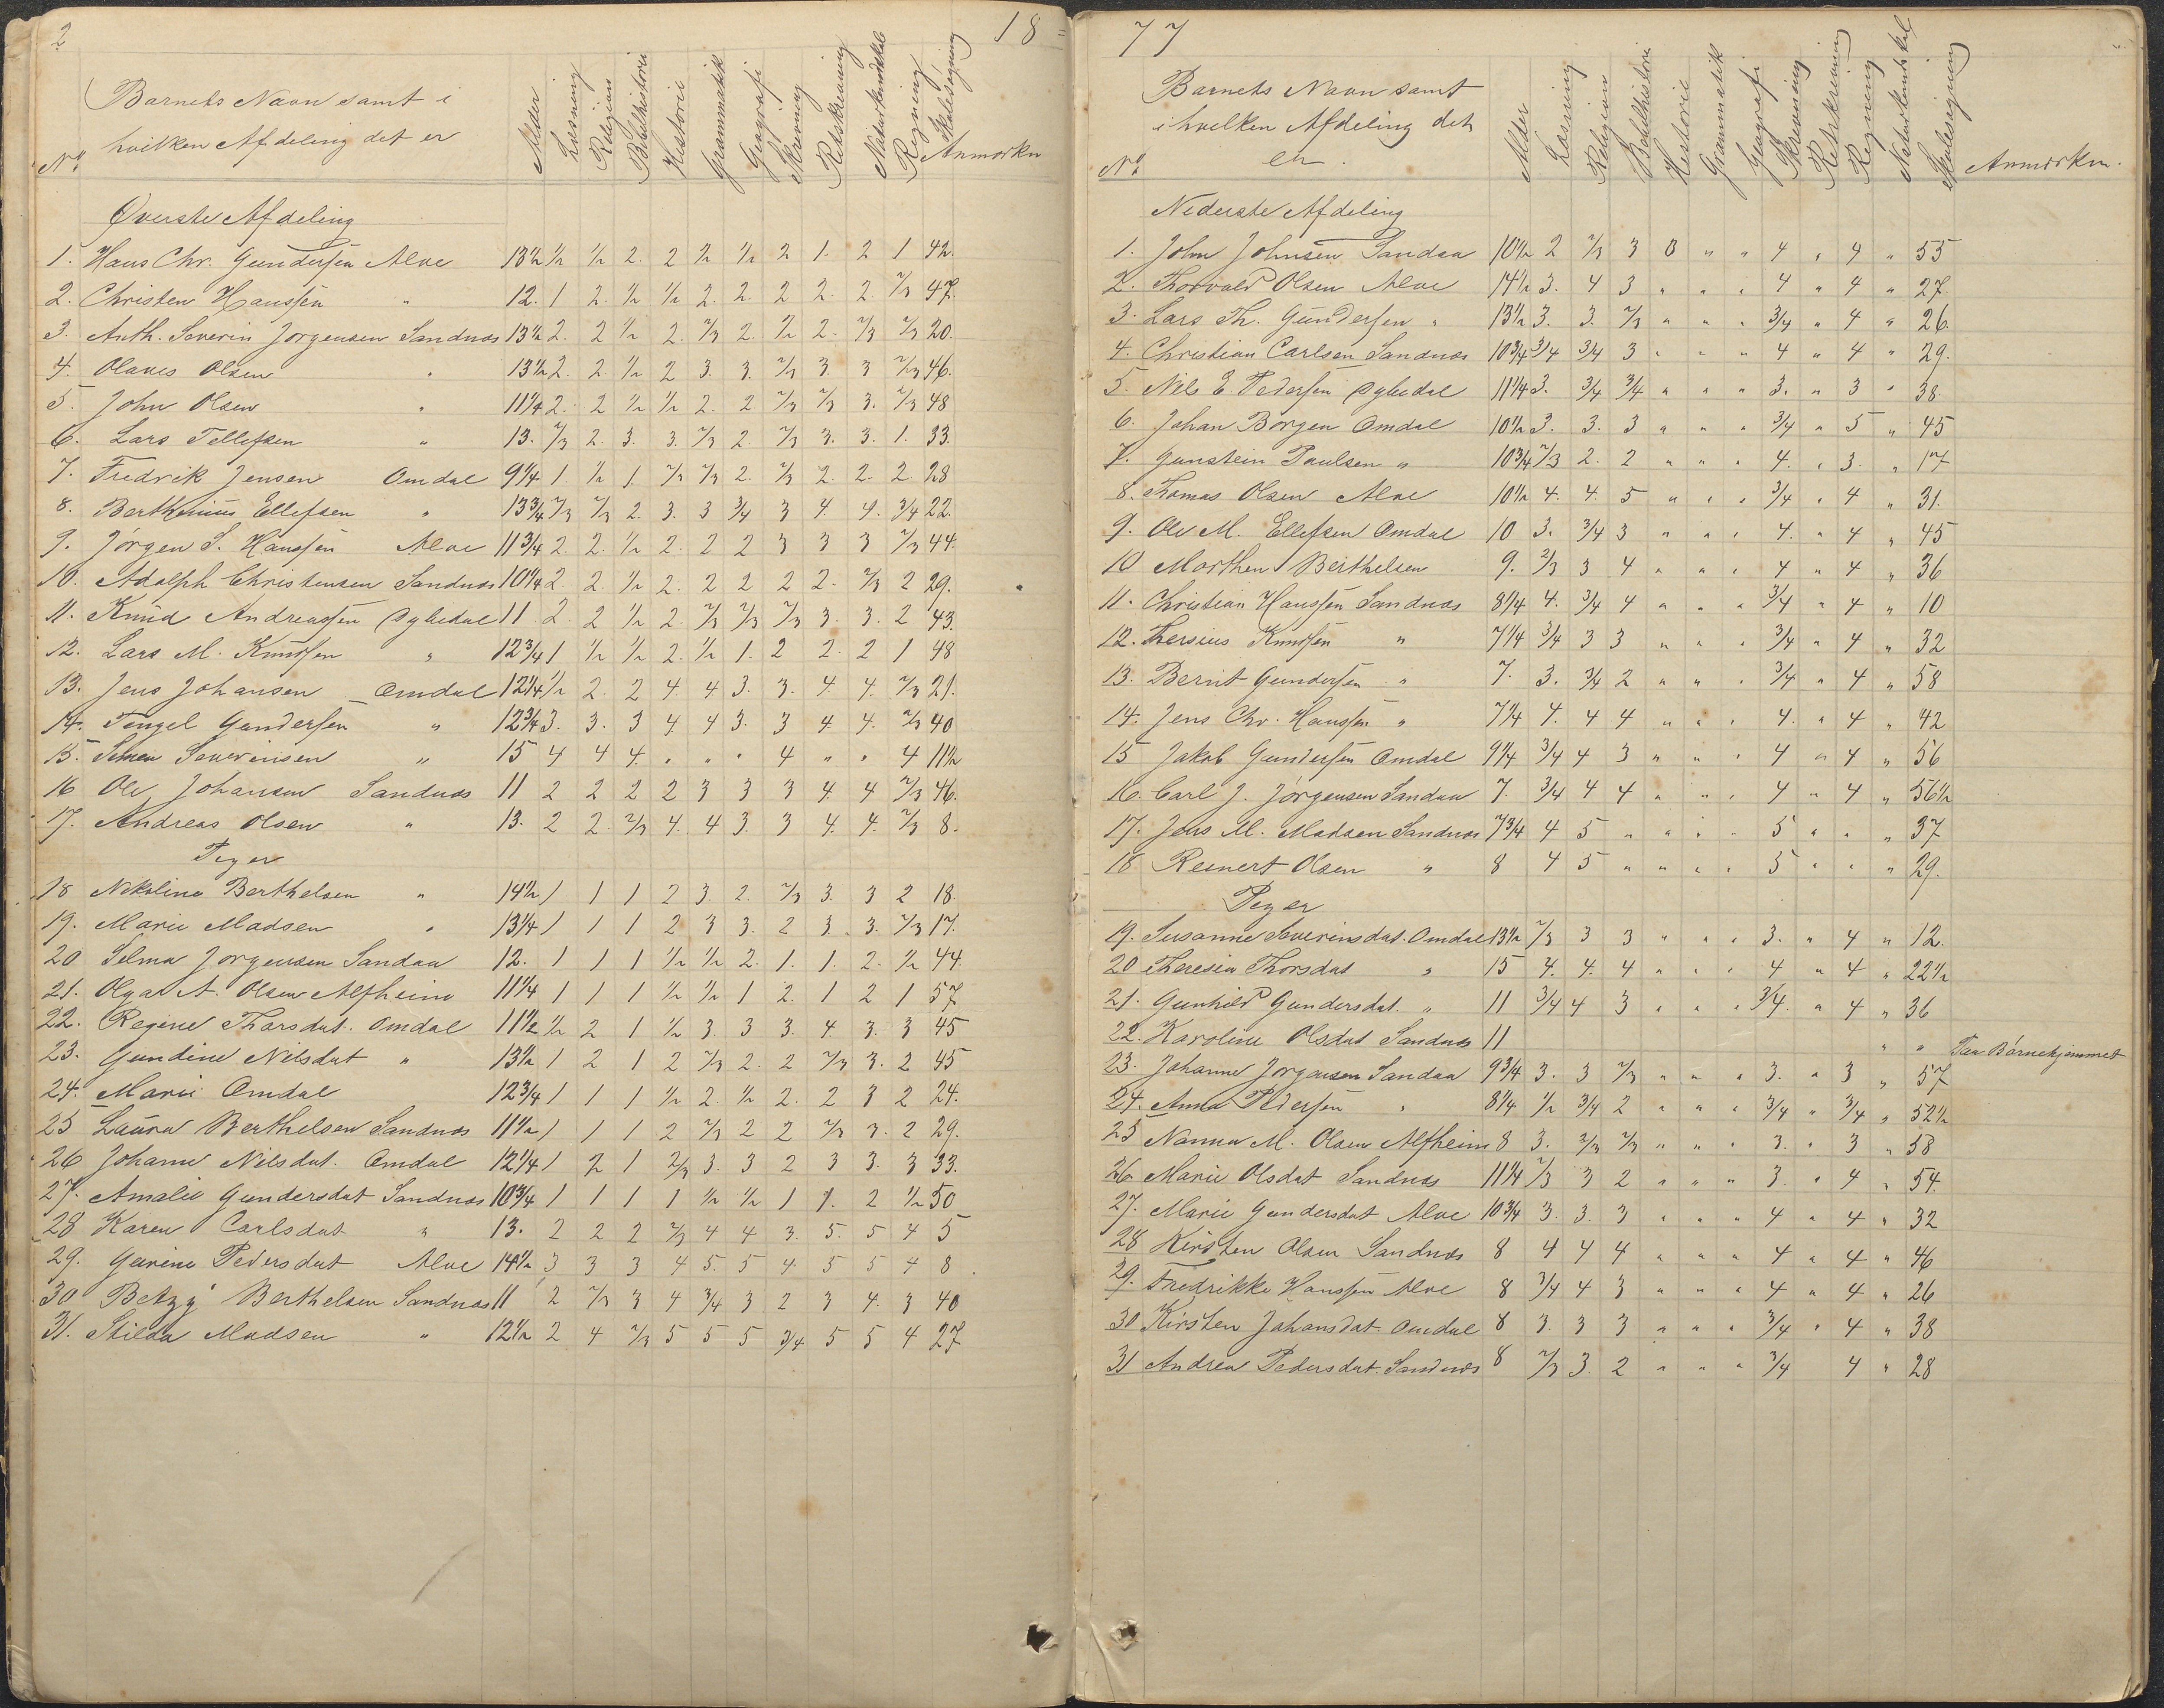 2
18
Barnets Navn samt i
hvilken Afdeling det er
No. Alder Læsning Religion Bibelhistorie Historie Grammatik Geografi Skrivning Retskrivning Naturkundskab Regning Skolesøgning Anmærkn
Øverste Afdeling
1. Hans Chr. Gundersen Alve 13½ ½ ½ 2. 2 ½ ½ 2 1. 2 1 42.
2. Christen Hanssen " 12. 1 2. ½ ½ 2. 2. 2 2. 2. 2/3 47.
3. Anth. Severin Jørgensen Sandnæs 13½ 2. 2 ½ 2. 2/3 2. ½ 2. 2/3 2/3 20.
4. Olaves Olsen " 13½ 2. 2. ½ 2 3. 3. 2/3 3. 3 2/3 46.
5. John Olsen " 11¼ 2. 2 ½ ½ 2. 2 2/3 2/3 3. 2/3 48
6. Lars Tellefsen " 13. 2/3 2. 3. 3. 2/3 2. 2/3 3. 3. 1. 33.
7. Fredrik Jensen Omdal 9¼ 1. ½ 1. 2/3 2/3 2. 2/3 2. 2. 2 28
8. Berthinius Ellefsen " 13¾ 2/3 2/3 2. 3. 3 ¾ 3 4. 4. ¾ 22.
9. Jørgen S. Hanssen Alve 11¾ 2. 2. ½ 2. 2 2 3 3 3 2/3 44.
10. Adolph Christensen Sandnæs 10¼ 2. 2. ½ 2. 2 2 2 2. 2/3 2 29.
11. Knud Andreassen Dybedal 11 2. 2 ½ 2. 2/3 2/3 2/3 3. 3. 2 43.
12. Lars M. Knudsen " 12¾ 1 ½ ½ 2. ½ 1. 2 2. 2 1 48
13. Jens Johansen Omdal 12¼ ½ 2. 2 4. 4 3. 3. 4. 4. 2/3 21.
14. Tengel Gundersen " 12¾ 3. 3. 3 4 4 3. 3 4. 4. 2/3 40
15. Severinsen " 15 4 4 4. " " " 4 " " 4 11½
16 Ole Johansen Sandnæs 11 2 2 2 2 3 3 3 4. 4 2/3 46.
17. Andreas Olsen " 13. 2 2. 2/3 4. 4 3. 3 4. 4. 2/3 8.
Piger
18 Nikoline Berthelsen " 14½ 1 1 1 2 3. 2. 2/3 3. 3 2 18.
19. Marie Madsen " 13¼ 1 1 1 2 3 3. 2 3. 3. 2/3 17.
20 Selma Jørgensen Sandaa 12. 1 1 1 ½ ½ 2. 1. 1. 2. ½ 44.
21. Olga A. Olsen Alfheim 11¼ 1 1 1 ½ ½ 1 2. 1 2 1 57.
22. Regine Thorsdat. Omdal 11½ ½ 2 1 ½ 3. 3 3. 4. 3. 3 45
23. Gundine Nilsdat " 13½ 1 2 1 2 2/3 2. 2 2/3 3. 2 45
24. Marie Omdal 12¾ 1 1 1 ½ 2. ½ 2. 2 3 2 24.
25 Laura Berthelsen Sandnæs 11½ 1 1 1 2 2/3 2 2 2/3 3. 2 29.
26 Johanne Nilsdat. Omdal 12¼ 1 2 1 2/3 3. 3 2 3 3. 3 33.
27. Amalie Gundersdat Sandnæs 10¾ 1 1 1 1 ½ ½ 1 1. 2 ½ 50
28 Karen Carlsdat " 13. 2 2 2 2/3 4 4 3. 5. 5 4 5
29. Gurine Pedersdat Alve 14½ 3 3 3 4 5. 5 4. 5 5 4 8
30 Betzy Berthelsen Sandnæs 11 2 2/3 3 4 ¾ 3 2 3 4. 3 40
31. Hilda Madsen " 12½ 2 4 2/3 5 5 5 ¾ 5 5 4 27.
77
Barnets Navn samt
i hvilken Afdeling det
er.
No. Alder Læsning Religion Bibelhistorie Historie Grammatik Geografi Skrivning Retskrivning Regning Naturkundskab Skolesøgning Anmærkn.
Nederste Afdeling
1. John Johnsen Sandaa 10½ 2 2/3 3 0 " " 4 " 4 " 55
2. Thorvald Olsen Alve 14½ 3. 4 3 " " " 4 " 4 " 27.
3. Lars Th. Gundersen " 13½ 3. 3. 2/3 " " " ¾ " 4 " 26.
4. Christian Carlsen Sandnæs 10¾ ¾ ¾ 3 " " " 4 " 4 " 29.
5. Nils E. Pedersen Dybedal 11¼ 3. ¾ ¾ " " " 3. " 3 " 38.
6. Johan Børgen Omdal 10½ 3. 3. 3 " " " ¾ " 5 " 45
7. Gunstein Paulsen " 10¾ 2/3 2. 2 " " " 4. " 3. " 17
8. Thomas Olsen Alve 10½ 4. 4. 5 " " " ¾ " 4 " 31.
9. Ole M. Ellefsen Omdal 10 3. ¾ 3 " " " 4. " 4 " 45
10 Morthen Berthelsen 9. 2/3 3 4 " " " 4 " 4 " 36
11. Christian Hanssen Sandnæs 8¼ 4. ¾ 4 " " " ¾ " 4 " 10
12. Thersius Knudsen " 7¼ ¾ 3 3 " " " ¾ " 4 " 32
13. Bernt Gundersen " 7. 3. ¾ 2 " " " ¾ " 4 " 58
14. Jens Chr. Hanssen " 7¼ 4. 4 4 " " " 4. " 4 " 42
15 Jakob Gundersen Omdal 9¼ ¾ 4 3 " " " 4 " 4 " 56
16. Carl J. Jørgensen Sandaa 7. ¾ 4 4 " " " 4 " 4 " 56½
17. Jens M. Madsen Sandnæs 7¾ 4 5 " " " " 5 " " " 37
18 Reinert Olsen " 8 4 5 " " " " 5 " " " 29.
Piger
19. Susanne Severinsdat. Omdal 13½ 2/3 3 3 " " " 3. " 4 " 12.
20 Theresia Thorsdat " 15 4. 4. 4 " " " 4 " 4 " 22½
21. Gunhild Gundersdat. " 11 ¾ 4 3 " " " ¾. " 4 " 36
22. Karoline Olsdat Sandnæs 11 " " Paa Børnehjemmet
23. Johanne Jørgensen Sandaa 9¾ 3. 3 2/3 " " " 3. " 3 " 57
24. Anna Pedersen " 8¼ ½ ¾ 2 " " " ¾ " ¾ " 52½
25 Nanna M. Olsen Alfheim 8 3. 2/3 2/3 " " " 3. " 3 " 58
26. Marie Olsdat Sandnæs 11¼ 2/3 3 2 " " " 3. " 4 " 54.
27. Marie Gundersdat Alve 10¾ 3. 3. 3 " " " 4 " 4 " 32
28 Kirsten Olsen Sandnæs 8 4 4 4 " " " 4 " 4 " 46
29. Fredrikke Hanssen Alve 8 ¾ 4 3 " " " 4 " 4 " 26
30 Kirsten Johansdat. Omdal 8 3. 3 3 " " " ¾ " 4 " 38
31 Andrea Pedersdat. Sandnæs 8 2/3 3. 2 " " " ¾ 4 " 28